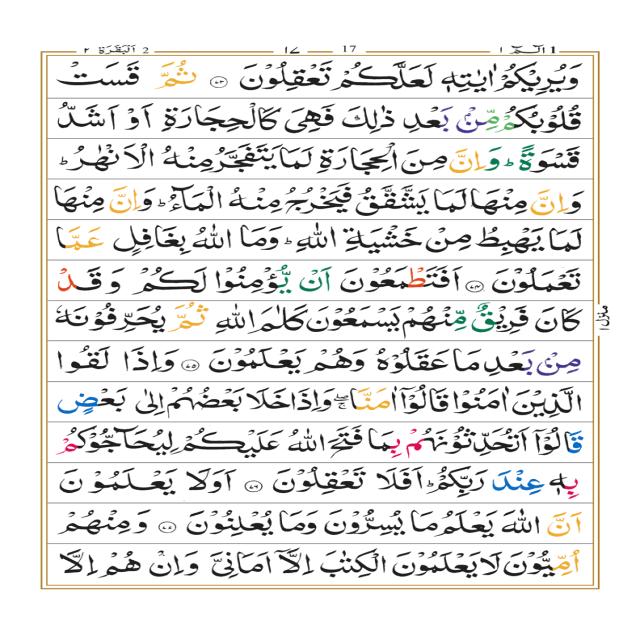 1 الٓمّٓ ١ 17 ١٧ 2 اَلْبَقَرَة ٢
وَيُرِيْكُمْ اٰيٰتِهٖ لَعَلَّكُمْ تَعْقِلُوْنَ ﴿٧٣﴾ ثُمَّ قَسَتْ
قُلُوْبُكُمْ مِّنْۢ بَعْدِ ذٰلِكَ فَهِىَ كَالْحِجَارَةِ اَوْ اَشَدُّ
قَسْوَةً ؕ وَاِنَّ مِنَ الْحِجَارَةِ لَمَا يَتَفَجَّرُ مِنْهُ الْاَنْهٰرُ ؕ
وَاِنَّ مِنْهَا لَمَا يَشَّقَّقُ فَيَخْرُجُ مِنْهُ الْمَآءُ ؕ وَاِنَّ مِنْهَا
لَمَا يَهْبِطُ مِنْ خَشْيَةِ اللّٰهِ ؕ وَمَا اللّٰهُ بِغَافِلٍ عَمَّا
تَعْمَلُوْنَ ﴿٧٤﴾ اَفَتَطْمَعُوْنَ اَنْ يُّؤْمِنُوْا لَكُمْ وَقَدْ
كَانَ فَرِيْقٌ مِّنْهُمْ يَسْمَعُوْنَ كَلٰمَ اللّٰهِ ثُمَّ يُحَرِّفُوْنَهٗ
مِنْۢ بَعْدِ مَا عَقَلُوْهُ وَهُمْ يَعْلَمُوْنَ ﴿٧٥﴾ وَاِذَا لَقُوا
الَّذِيْنَ اٰمَنُوْا قَالُوْٓا اٰمَنَّا ۖۚ وَاِذَا خَلَا بَعْضُهُمْ اِلٰى بَعْضٍ
قَالُوْٓا اَتُحَدِّثُوْنَهُمْ بِمَا فَتَحَ اللّٰهُ عَلَيْكُمْ لِيُحَآجُّوْكُمْ
بِهٖ عِنْدَ رَبِّكُمْ ؕ اَفَلَا تَعْقِلُوْنَ ﴿٧٦﴾ اَوَلَا يَعْلَمُوْنَ
اَنَّ اللّٰهَ يَعْلَمُ مَا يُسِرُّوْنَ وَمَا يُعْلِنُوْنَ ﴿٧٧﴾ وَمِنْهُمْ
اُمِّيُّوْنَ لَا يَعْلَمُوْنَ الْكِتٰبَ اِلَّآ اَمَانِىَّ وَاِنْ هُمْ اِلَّا
منزل ١